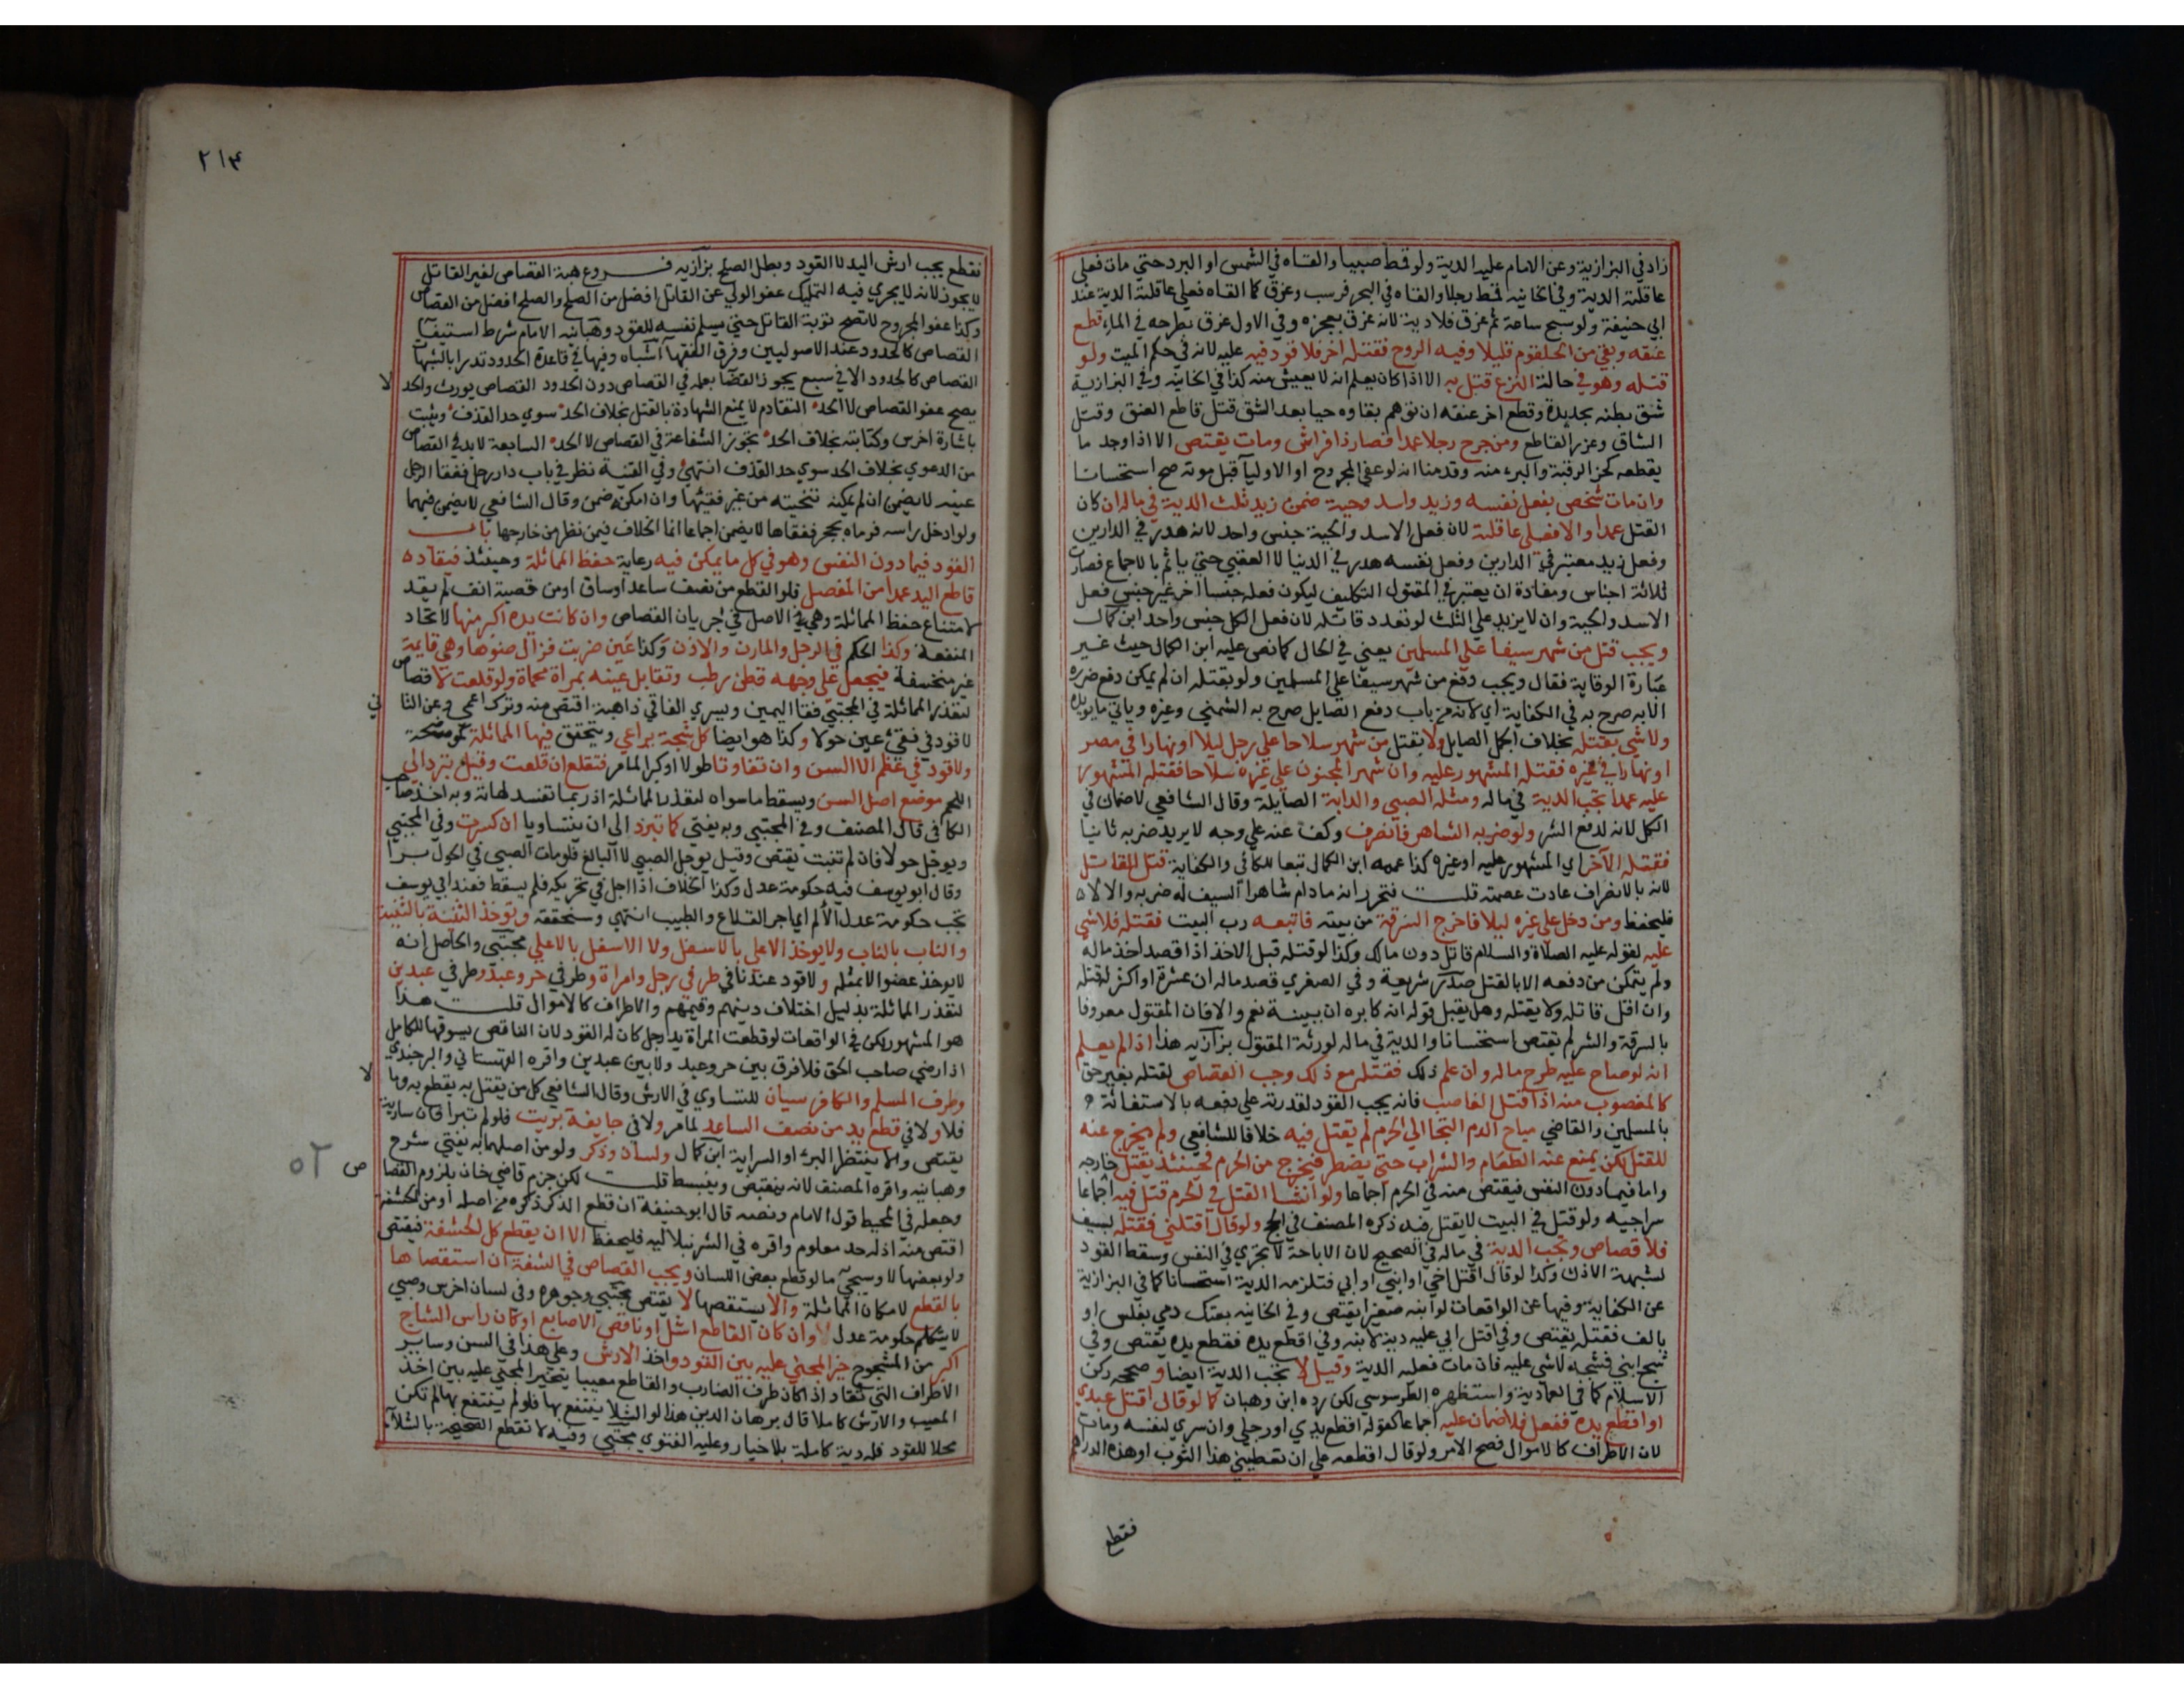 زاد في البزازية وعن الامام عليه الدية ولو قمط صبيا والقاه في الشمس او البرد حتي مات فعلي
عاقلته الدية وفي الخانيه قمط رجلا والقاه في البحر فرسب وغرق كما القاه فعلي عاقلته الدية عند
ابي حنيفة ولو سبح ساعة ثم غرق فلا دية لانه غرق بعجزه وفي الاول غرق بطرحه في الماء قطع
عنقه وبقي من الحلقوم قليلا وفيه الروح فقتله اخر فلا قود فيه عليه لانه في حكم الميت ولو
قتله وهو في حالة النزع قتل به الا اذا كان يعلم انه لا يعيش منه كذا في الخانيه وفي البزازية
شق بطنه بحديدة وقطع اخر عنقه ان توهم بقاوه حيا بعد الشق قتل قاطع العنق وقتل
الشاق وعزر القاطع ومن جرح رجلا عمدا فصار ذا فراش ومات يقتص الا اذا وجد ما
يقطعه كحز الرقبة والبرء منه وقدمنا انه لو عفي المجروح او الاوليآ قبل موته صح استحسانا
وان مات شخص بفعل نفسه وزيد واسد وحية ضمن زيد ثلث الدية في ماله ان كان
القتل عمدا والا فعلي عاقلته لان فعل الاسد والحية جنس واحد لانه هدر في الدارين
وفعل زيد معتبر في الدارين وفعل نفسه هدر في الدنيا لا العقبي حتي ياثم بالاجماع فصارت
ثلاثة اجناس ومفاده ان يعتبر في المقتول التكليف ليكون فعله جنسا اخر غير جنس فعل
الاسد والحية وان لا يزيد علي الثلث لو تعدد قاتله لان فعل الكل جنس واحد ابن كمال
ويجب قتل من شهر سيفا علي المسلمين يعني في الحال كما نص عليه ابن الكمال حيث غير
عبارة الوقاية فقال ويجب دفع من شهر سيفا علي المسلمين ولو بقتله ان لم يمكن دفع ضرره
الا به صرح به في الكفاية اي لانه من باب دفع الصايل صرح به الشمني وغيره وياتي ما يويده
ولا شي بقتله بخلاف الجمل الصايل ولا يقتل من شهر سلاحا علي رجل ليلا او نهارا في مصر
او نهارا في غيره فقتله المشهور عليه وان شهر المجنون علي غيره سلاحا فقتله المشهور
عليه عمدا تجب الدية في ماله ومثله الصبي والدابة الصايلة وقال الشافعي لا ضمان في
الكل لانه لدفع الشر ولو ضربه الشاهر فانصرف وكف عنه علي وجه لا يريد ضربه ثانيا
فقتله الآخر اي المشهور عليه او غيره كذا عممه ابن الكمال تبعا للكافي والكفاية قتل القاتل
لانه بالانصراف عادت عصمته قلت فتحرر انه ما دام شاهرا السيف له ضربه والا لا
فليحفظ ومن دخل علي غيره ليلا فاخرج السرقة من بيته فاتبعه رب البيت فقتله فلا شي
عليه لقوله عليه الصلاة والسلام قاتل دون مالك وكذا لو قتله قبل الاخذ اذا قصد اخذ ماله
ولم يتمكن من دفعه الا بالقتل صدر شريعة وفي الصغري قصد ماله ان عشرة او اكثر له قتله
وان اقل قاتله ولا يقتله وهل يقبل قوله انه كابره ان ببينة نعم والا فان المقتول معروفا
بالسرقة والشر لم يقتص استحسانا والدية في ماله لورثة المقتول بزازيه هذا اذا لم يعلم
انه لو صاح عليه طرح ماله وان علم ذلك فقتله مع ذلك وجب القصاص لقتله بغير حق
كالمغصوب منه اذا قتل الغاصب فانه يجب القود لقدرته علي دفعه بالاستغاثة
بالمسلمين والقاضي مباح الدم التجا الي الحرم لم يقتل فيه خلافا للشافعي ولم يخرج عنه
للقتل لكن يمنع عنه الطعام والشراب حتي يضطر فيخرج من الحرم فحينئذ يقتل خارجه
واما فيما دون النفس فيقتص منه في الحرم اجماعا ولو انشا القتل في الحرم قتل فيه اجماعا
سراجيه ولو قتل في البيت لا يقتل فيه ذكره المصنف في الحج ولو قال اقتلني فقتله بسيف
فلا قصاص وتجب الدية في ماله في الصحيح لان الاباحة لا تجري في النفس وسقط القود
لشبهة الاذن وكذا لو قال اقتل اخي او ابني او ابي فتلزمه الدية استحسانا كما في البزازية
عن الكفاية وفيها عن الواقعات لو ابنه صغيرا يقتص وفي الخانيه بعتك دمي بفلس او
بالف فقتله يقتص وفي اقتل ابي عليه دية لابنه وفي اقطع يده فقطع يده يقتص وفي
شج ابني فشجه لا شي عليه فان مات فعليه الدية وقيل لا تجب الدية ايضا وصححه ركن
الاسلام كما في العمادية واستظهره الطرسوسي لكن رده ابن وهبان كما لو قال اقتل عبدي
او اقطع يده ففعل فلا ضمان عليه اجماعا كقوله اقطع يدي او رجلي وان سري لنفسه ومات
لان الاطراف كالاموال فصح الامر ولو قال اقطعه علي ان تعطيني هذا الثوب او هذه الدراهم
فقطع
٢١٤
فقطع يجب ارش اليد لا القود وبطل الصلح بزازيه فروع هبة القصاص لغير القاتل
لا يجوز لانه لا يجري فيه التمليك عفو الولي عن القاتل افضل من الصلح والصلح افضل من القصاص
وكذا عفو المجروح لا تصح توبة القاتل حتي يسلم نفسه للقود وهبانيه الامام شرط استيفآ
القصاص كالحدود عند الاصوليين وفرق الفقهآ اشباه وفيها في قاعدة الحدود تدرا بالشبهات
القصاص كالحدود الا في سبع يجوز القضا بعلمه في القصاص دون الحدود القصاص يورث والحد لا
يصح عفو القصاص لا الحد التقادم لا يمنع الشهادة بالقتل بخلاف الحد سوي حد القذف ويثبت
باشارة اخرس وكتابته بخلاف الحد تجوز الشفاعة في القصاص لا الحد السابعة لا بد في القصاص
من الدعوي بخلاف الحد سوي حد القذف انتهي وفي القنية نظر في باب دار رجل ففقا الرجل
عينه لا يضمن ان لم يمكنه تنحيته من غير فقيها وان امكنه ضمن وقال الشافعي لا يضمن فيهما
ولو ادخل راسه فرماه بحجر ففقاها لا يضمن اجماعا انما الخلاف فيمن نظر من خارجها باب
القود فيما دون النفس وهو في كل ما يمكن فيه رعاية حفظ المماثلة وحينئذ فيقاد
قاطع اليد عمدا من المفصل فلو القطع من نصف ساعد او ساق او من قصبة انف لم يقد
لامتناع حفظ المماثلة وهي الاصل في جريان القصاص وان كانت يده اكبر منها لاتحاد
المنفعة وكذا الحكم في الرجل والمارن والاذن وكذا عين ضربت فزال ضوءها وهي قايمة
غير منخسفة فيجعل علي وجهه قطن رطب وتقابل عينه بمرآة محماة ولو قلعت لا قصاص
لتعذر المماثلة في المجتبي فقا اليمين ويسري الفاقي ذاهبة اقتص منه وترك اعمي وعن الثاني
لا قود في فقئ عين حولا وكذا هو ايضا كل شجة يراعي ويتحقق فيها المماثلة كموضحة
ولا قود في عظم الا السن وان تفاوتا طولا او كبرا لما مر فتقلع ان قلعت وقيل تبرد الي
اللحم موضع اصل السن ويسقط ما سواه لتعذر المماثلة اذ ربما تفسد لهاته وبه اخذ صاحب
الكافي قال المصنف وفي المجتبي وبه يفتي كما تبرد الي ان يتساويا ان كسرت وفي المجتبي
ويوجل حولا فان لم تنبت يقتص وقيل يوجل الصبي لا البالغ فلو مات الصبي في الحول برا
وقال ابو يوسف فيه حكومة عدل وكذا الخلاف اذا اجل في تحريكه فلم يسقط فعند ابي يوسف
تجب حكومة عدل الالم اي اجر القلاع والطبيب انتهي وسنحققه وتوخذ الثنية بالثنية
والناب بالناب ولا يوخذ الاعلي بالاسفل ولا الاسفل بالاعلي مجتبي والحاصل انه
لا يوخذ عضو الا بمثله ولا قود عندنا في طرفي رجل وامراة وطرفي حر وعبد وطرفي عبدين
لتعذر المماثلة بدليل اختلاف ديتهم وقيمتهم والاطراف كالاموال قلت هذا
هو المشهور لكن في الواقعات لو قطعت المراة يد رجل كان له القود لان الناقص يستوفي للكامل
اذا رضي صاحب الحق فلا فرق بين حر وعبد ولا بين عبدين واقره القهستاني والبرجندي
وطرف المسلم والكافر سيان للتساوي في الارش وقال الشافعي كل من يقتل به يقطع به وما لا
فلا ولا في قطع يد من نصف الساعد لما مر ولا في جايفة بريت فلو لم تبرا فان سارية
يقتص والا ينتظر البرء او السراية ابن كمال ولسان وذكر ولو من اصلهما به يفتي شرح
وهبانيه واقره المصنف لانه ينقبض وينبسط قلت لكن جزم قاضي خان بلزوم القصاص
وجعله في المحيط قول الامام ونصه قال ابو حنيفة ان قطع الذكر ذكره من اصله او من الحشفة
اقتص منه اذ له حد معلوم واقره في الشرنبلاليه فليحفظ الا ان يقطع كل الحشفة فيقتص
ولو بعضها لا وسيجي ما لو قطع بعض اللسان ويجب القصاص في الشفة ان استقصاها
بالقطع لامكان المماثلة والا يستقصها لا يقتص مجتبي وجوهره وفي لسان اخرس وصبي
لا يتكلم حكومة عدل وان كان القاطع اشل او ناقص الاصابع او كان راس الشاج
اكبر من المشجوج خير المجني عليه بين القود واخذ الارش وعلي هذا في السن وساير
الاطراف التي تقاد اذا كان طرف الضارب والقاطع معيبا يتخير المجني عليه بين اخذ
المعيب والارش كاملا قال برهان الدين هذا لو الشلا ينتفع بها فلو لم ينتفع بها لم تكن
محلا للقود فله دية كاملة بلا خيار وعليه الفتوي مجتبي وفيه لا تقطع الصحيحة بالشلآ